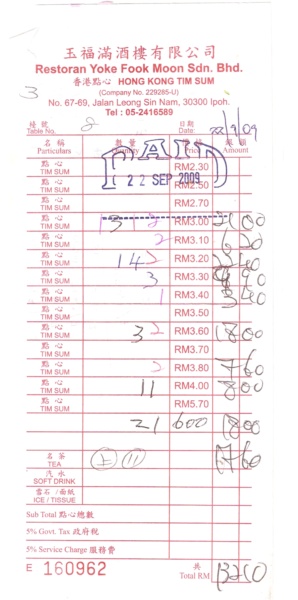 玉福滿酒樓有限公司
Restoran Yoke Fook Moon Sdn. Bhd.
香港點心 HONG KONG TIM SUM
(Company No. 229285-U)
3
No. 67-69, Jalan Leong Sin Nam, 30300 Ipoh.
Tel : 05-2416589
檯號 Table No. 8 日期 Date 22/9/09
名稱 Particulars 數量 Quantity 價格 Price 銀額 Amount
PAID
22 SEP 2009
點心 TIM SUM RM2.30
點心 TIM SUM RM2.50
點心 TIM SUM RM2.70
點心 TIM SUM RM3.00
點心 TIM SUM 2 RM3.10 6 20
點心 TIM SUM RM3.20
點心 TIM SUM 3 RM3.30
點心 TIM SUM 1 RM3.40 3 40
點心 TIM SUM RM3.50
點心 TIM SUM 3 2 RM3.60 18 00
點心 TIM SUM RM3.70
點心 TIM SUM 2 RM3.80 7 60
點心 TIM SUM 11 RM4.00 8 00
點心 TIM SUM RM5.70
21 600 18 00
名茶 TEA 17 60
汽水 SOFT DRINK
雪石/面紙 ICE / TISSUE
Sub Total 點心總數
5% Govt. Tax 政府稅
5% Service Charge 服務費
E 160962 共 Total RM 132 10